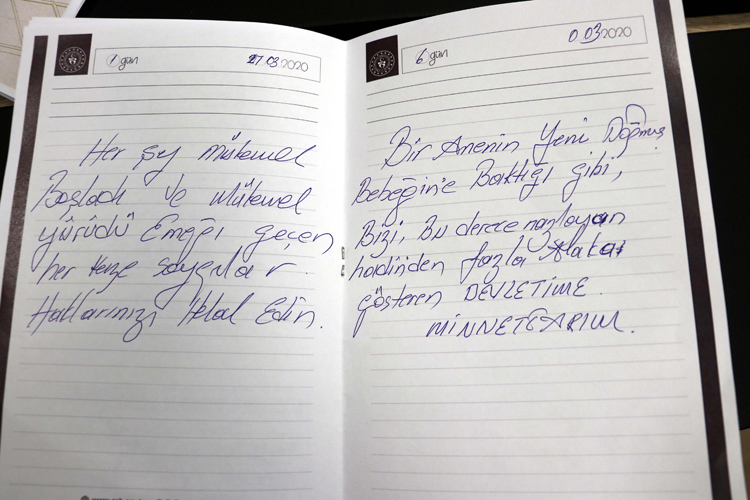 1 gün 27.03.2020
Her şy mükemel
Başladı ve mükemel
yürüdü Emeği geçen
herkeze saygılar
Haklarınızı Helal Edin.
6 gün 0 03 2020
Bir Anenin Yeni Doğmuş
Bebeğin'e Baktığı gibi,
Bizi, Bu derece nazlayan
haddinden fazla Alaka
gösteren DEVLETİME
MİNNETTARIM.